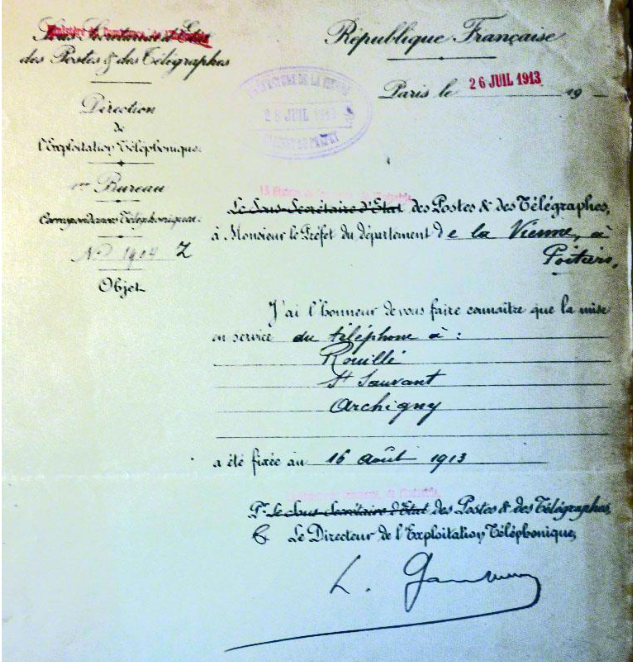 Ministère du Commerce, de l'Industrie
Sous-Secrétariat d'Etat
des Postes & des Télégraphes
Direction
de
l'Exploitation Téléphonique
1er Bureau
Correspondances Téléphoniques
No Z
Objet
République Française
Paris le 26 JUIL 1913 19
PRÉFECTURE DE LA VIENNE
28 JUIL 1913
CABINET DU PRÉFET
Le Sous-Secrétaire d'Etat des Postes & des Télégraphes,
à Monsieur le Préfet du département de la Vienne, à
Poitiers,
J'ai l'honneur de vous faire connaître que la mise
en service du téléphone à :
Rouillé
St Sauvant
Archigny
a été fixée au 16 août 1913
Pr Le Sous-Secrétaire d'Etat des Postes & des Télégraphes,
Le Directeur de l'Exploitation Téléphonique,
L.